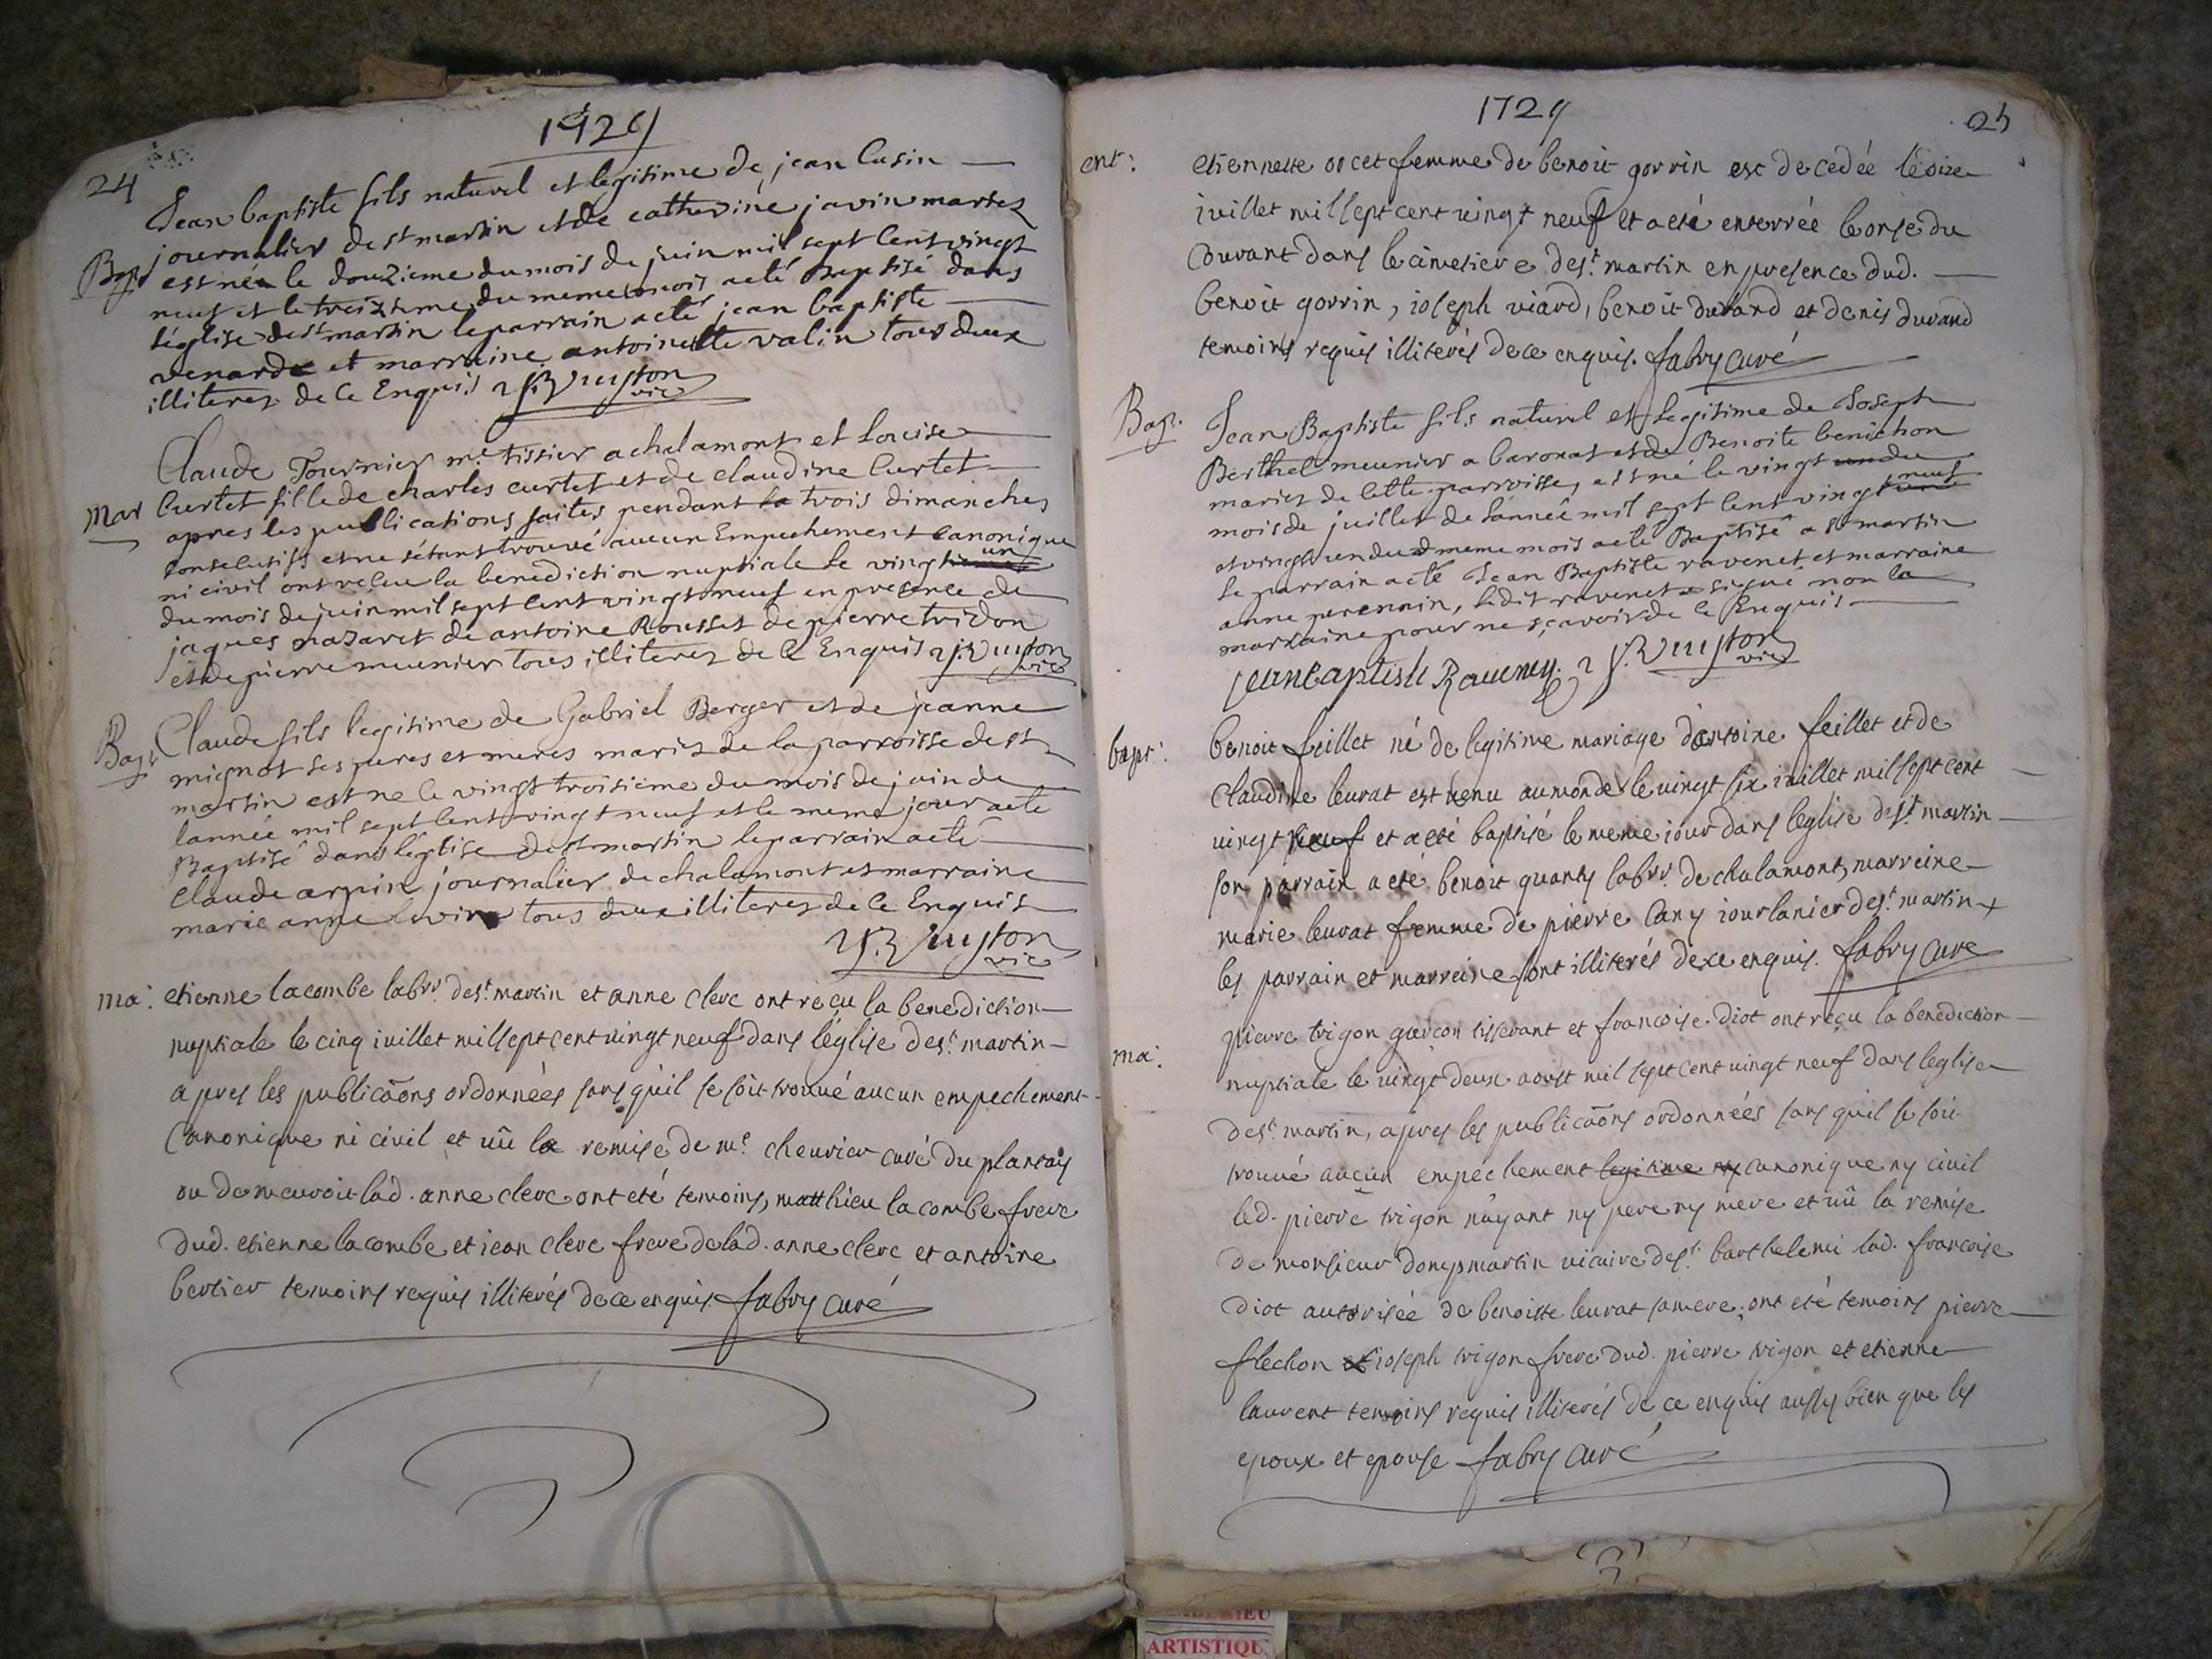 1729
24
Jean baptiste fils naturel et legitime de jean Cusin
journalier de st martin et de catherine javin mariez
Bapt est née le douzieme du mois de juin mil sept cent vingt
neuf et le treizieme du meme mois a eté Baptisé dans
l'église de st martin le parrain a eté jean baptiste
venard et marraine antoinette valin tous deux
illiterez de ce Enquis
vic
Claude Fournier me tissier a chalamont et Louise
Mar Curtet fille de charles curtet et de claudine Curtet
apres les publications faites pendant la trois dimanches
consecutifs et ne s'étant trouvé aucun Empechement canonique
ni civil ont reçeu la benediction nuptiale le vingt un
du mois de juin mil sept cent vingt neuf en presence de
jaques nazaret de antoine Rousset de pierre tridon
et de pierre meunier tous illiterez de ce Enquis
vic
Bapt Claude fils legitime de Gabriel Berger et de jeanne
mignot ses peres et meres mariez de la parroisse de st
martin est ne le vingt troisième du mois de juin de
lannée mil sept cent vingt neuf et le meme jour a eté
Baptisé dans l'église de st martin le parrain a eté
Claude arpin journalier de chalamont et marraine
marie anne tous deux illiterez de ce Enquis
vic
ma: etienne lacombe labr. de st. martin et anne clerc ont reçu la benediction
nuptiale le cinq iuillet mil sept cent vingt neuf dans l'église de st. martin
apres les publicãons ordonnées sans qu'il se soit trouvé aucun empechement
Canonique ni civil et vû la remise de mr. chevrier curé du plantay
ou demeuroit lad. anne clerc ont eté temoins, matthieu lacombe frere
dud. etienne lacombe et iean clerc frere de lad. anne clerc et antoine
bertier temoins requis illiterés de ce enquis fabry curé
1729
25
ent: etiennette orcet femme de benoit gorrin est decedée le
iuillet mil sept cent vingt neuf et a eté enterrée le onse du
Courant dans le cimetiere de st. martin en presence dud.
benoit gorrin, ioseph viard, benoit durand et denis durand
temoins requis illiterés de ce enquis. fabry curé
Bapt. Jean Baptiste fils naturel et legitime de Joseph
Berthet meunier a baronat et de Benoite benichon
mariez de cette parroisse, est né le vingt un du
mois de juillet de l'année mil sept cent vingt neuf
et vingt un dud meme mois a eté Baptisé a st martin
le parrain a eté Jean Baptiste ravenet et marraine
anne perennin, ledit ravenet a signé non la
marraine pour ne sçavoir de ce Enquis
jean baptiste
vic
bapt: benoit feillet né de legitime mariage d'antoine feillet et de
Claudine leurat est venu au monde le vingt six iuillet mil sept cent
vingt neuf et a eté baptisé le meme iour dans l'eglise de st. martin
son parrain a eté benoit quanty labr. de chalamont, marreine
marie leurat femme de pierre Cany iournalier de st. martin
les parrain et marreine sont illiterés de ce enquis. fabry curé
ma: pierre trigon garcon tisserant et francoise diot ont reçu la benediction
nuptiale le vingt deux aoust mil sept cent vingt neuf dans leglise
de st. martin, apres les publicãons ordonnées sans quil se soit
trouvé aucun empechement legitime ny canonique ny civil
led. pierre trigon n'ayant ny pere ny mere et vû la remise
de monsieur dompmartin vicaire de st. barthelemi lad. francoise
diot autorisée de benoitte leurat sa mere, ont eté temoins pierre
flechon et ioseph trigon frere dud. pierre trigon et etienne
laurent temoins requis illiterés de ce enquis aussy bien que les
epoux et epouse fabry curé
ARTISTIQU